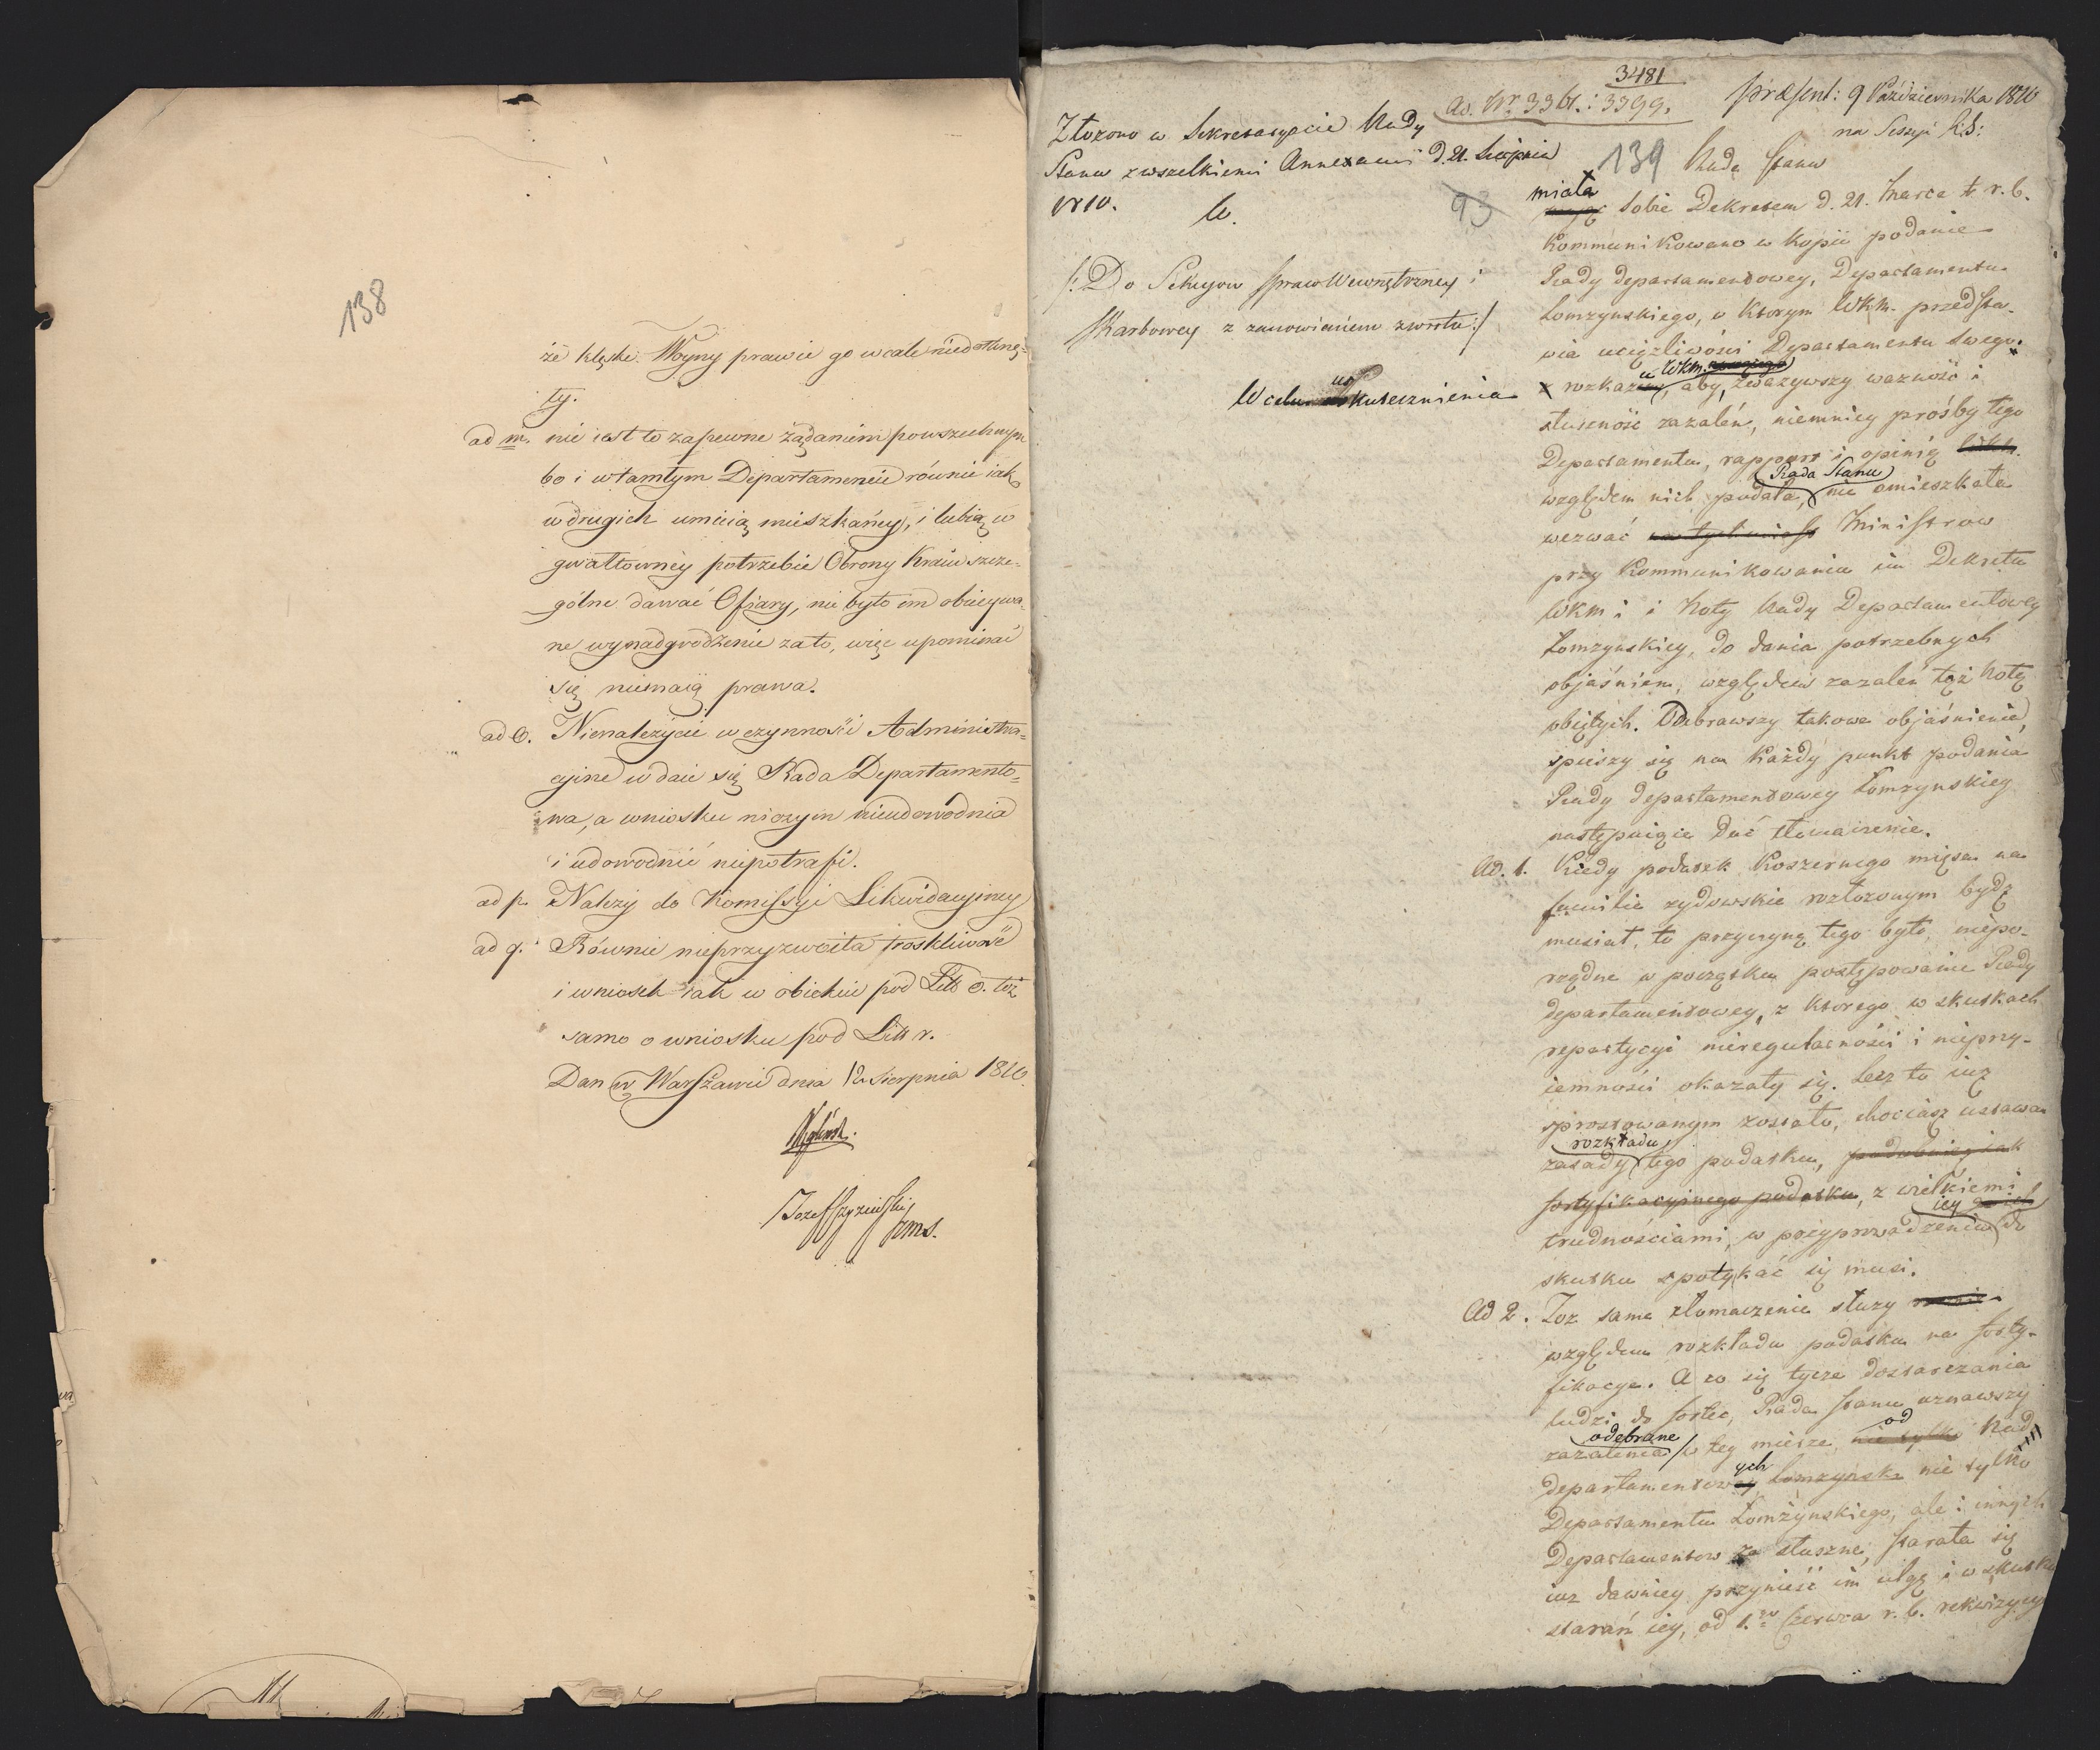 138
że klęski Woyny prawie go wcale niedotknę=
ły.
ad m. nie iest to zapewne żądaniem powszechnym
bo i wtamtym Departamencie równie iak
w drugich umieią mieszkańcy, i lubią w
gwałtowney potrzebie Obrony Kraiu szcze=
gólne dawać Ofiary, nie było im obiecywa=
ne wynadgrodzenie zato, więc upominać
się niemaią prawa.
ad o. Nienależycie w czynności Administra=
cyine wdaie się Rada Departamento=
wa, a wniosku niczym nieudowodnia
i udowodnić niepotrafi.
ad p. Należy do Komissyi Likwidacyiney
ad q. Równie nieprzyzwoita troskliwość
i wniosek iak w obiekcie pod Litt o. toż
samo o wniosku pod Litt r.
Dan w Warszawie dnia 12 Sierpnia 1810.
3481
ad. Nr. 3361. : 3399.
præsent: 9 Października 1810
na Sessyi R.S:
Złożono w Sekretaryacie Rady
Stanu z wszelkiemi Annexami d. 21. Sierpnia
1810.
139
93
/: Do Sekcyow Spraw Wewnętrzney i
Skarbowey z zamowieniem zwrotu :/
W celu uskutecznienia
Rada Stanu
miała
sobie Dekretem d. 21. Marca t. r. b.
Kommunikowano w kopii podanie
Rady departamentowey, Departamentu
Łomzynskiego, w ktorym WKM. przedsta-
wia uciążliwości Departamentu swego.
x rozkazu WKM. aby, zważywszy ważność i
słuszność zażaleń, niemniey prośby tego
Departamentu, rapport i opinię
względem nich podała, Rada Stanu nie omieszkała
wezwać natychmiast Ministrow
przy Kommunikowaniu im Dekretu
WKM i Noty Rady Departamentowey
Łomzynskiey, do dania potrzebnych
objaśnien, względem zażaleń tąż Notą
objętych. Odebrawszy takowe objaśnienie,
spieszy się na każdy punkt podania
Rady departamentowey Łomzynskiey
następuiące dać tłumaczenie.
Ad. 1. Kiedy podatek Koszernego mięsa na
familie żydowskie rozłożonym bydź
musiał, to przyczyną tego było, niepo-
rządne w początku postępowanie Rady
departamentowey, z ktorego w skutkach
repartycyi nieregularności i nieprzy-
iemności okazały się. Lecz to iuż
sprostowanym zostało, chociaż
zasady rozkładu tego podatku, podobnież iak
fortyfikacyinego podatku, z wielkiemi
trudnościami, w przyprowadzeniu iey do
skutku spotykać się musi.
Ad 2. Toż same tłomaczenie służy
względem rozkładu podatku na forty-
fikacye. A co się tycze dostarczania
ludzi do fortec, Rada Stanu uznawszy
zażalenia odebrane w tey mierze, nie tylko od Rad
departamentowych Łomzynsk. nie tylko
Departamentu Łomżynskiego, ale i innych
Departamentow za słuszne, starała się
iuż dawniey przynieść im ulgę i w skutku
starań iey, od 1. Czerwca r. b. rekwizycye